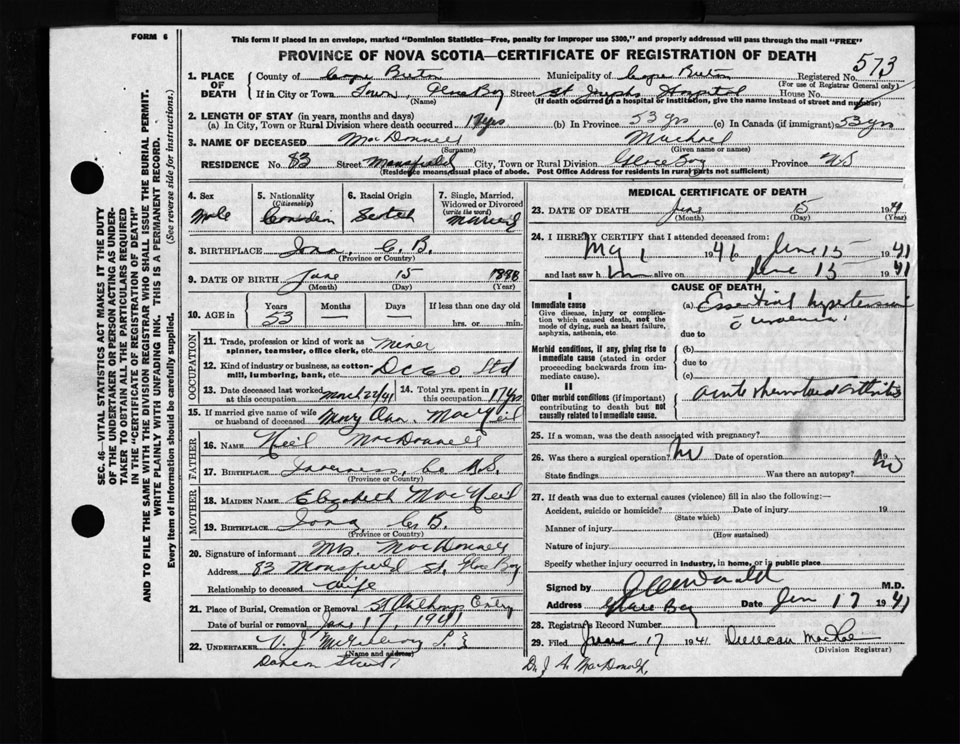 FORM 6
This form if placed in an envelope, marked "Dominion Statistics—Free, penalty for improper use $300," and properly addressed will pass through the mail "FREE"
PROVINCE OF NOVA SCOTIA—CERTIFICATE OF REGISTRATION OF DEATH
573
1. PLACE OF DEATH
County of Cape Breton Municipality of Cape Breton Registered No.
(For use of Registrar General only)
If in City or Town Town, Glace Bay Street St Josephs Hospital House No.
(Name) (If death occurred in a hospital or institution, give the name instead of street and number)
2. LENGTH OF STAY (in years, months and days)
(a) In City, Town or Rural Division where death occurred 17yrs (b) In Province 53 yrs (c) In Canada (if immigrant) 53 yrs
3. NAME OF DECEASED MacDonnell Michael
(Surname) (Given name or names)
RESIDENCE No. 83 Street Mansfield City, Town or Rural Division Glace Bay Province N.S
(Residence means usual place of abode. Post Office Address for residents in rural parts not sufficient)
4. Sex
Male
5. Nationality
(Citizenship)
Canadian
6. Racial Origin
Scotch
7. Single, Married, Widowed or Divorced
(write the word)
Married
8. BIRTHPLACE Iona, C. B.
(Province or Country)
9. DATE OF BIRTH June 15 1888
(Month) (Day) (Year)
10. AGE in
Years Months Days If less than one day old
53 — — hrs. or min.
OCCUPATION
11. Trade, profession or kind of work as spinner, teamster, office clerk, etc. Miner
12. Kind of industry or business, as cotton-mill, lumbering, bank, etc. Ltd
13. Date deceased last worked at this occupation March 22/41
14. Total yrs. spent in this occupation 17yrs
15. If married give name of wife or husband of deceased Mary Ann MacNeil
FATHER
16. NAME Neil MacDonnell
17. BIRTHPLACE Inverness, Co N.S.
(Province or Country)
MOTHER
18. MAIDEN NAME Elizabeth MacNeil
19. BIRTHPLACE Iona, C. B.
(Province or Country)
20. Signature of informant Mrs MacDonnell
Address 83 Mansfield St. Glace Bay
Relationship to deceased wife
21. Place of Burial, Cremation or Removal
Date of burial or removal 17, 1941
22. UNDERTAKER V. J. McGillivray
(Name and address)
MEDICAL CERTIFICATE OF DEATH
23. DATE OF DEATH June 15 1941
(Month) (Day) (Year)
24. I HEREBY CERTIFY that I attended deceased from:
May 1 1941 to June 15 1941
and last saw him alive on June 15 1941
CAUSE OF DEATH
I
Immediate cause
Give disease, injury or complication which caused death, not the mode of dying, such as heart failure, asphyxia, asthenia, etc.
(a) Essential hypertension
c̄ uraemia
due to
Morbid conditions, if any, giving rise to immediate cause (stated in order proceeding backwards from immediate cause).
(b)
due to
(c)
II
Other morbid conditions (if important) contributing to death but not causally related to immediate cause.
acute rheumatoid arthritis
25. If a woman, was the death associated with pregnancy?
26. Was there a surgical operation? No Date of operation 19
State findings Was there an autopsy? No
27. If death was due to external causes (violence) fill in also the following:
Accident, suicide or homicide? Date of injury 19
(State which)
Manner of injury
(How sustained)
Nature of injury
Specify whether injury occurred in industry, in home, or in public place
Signed by M.D.
Address Glace Bay Date Jun 17 1941
28. Registrar's Record Number
29. Filed June 17 1941 Duncan MacRae
(Division Registrar)
Dr. J. A. MacDonald.
SEC. 46—VITAL STATISTICS ACT MAKES IT THE DUTY
OF THE UNDERTAKER OR PERSON ACTING AS UNDER-
TAKER TO OBTAIN ALL THE PARTICULARS REQUIRED
IN THE "CERTIFICATE OF REGISTRATION OF DEATH"
AND TO FILE THE SAME WITH THE DIVISION REGISTRAR WHO SHALL ISSUE THE BURIAL PERMIT.
WRITE PLAINLY WITH UNFADING INK. THIS IS A PERMANENT RECORD.
Every item of Information should be carefully supplied. (See reverse side for instructions.)